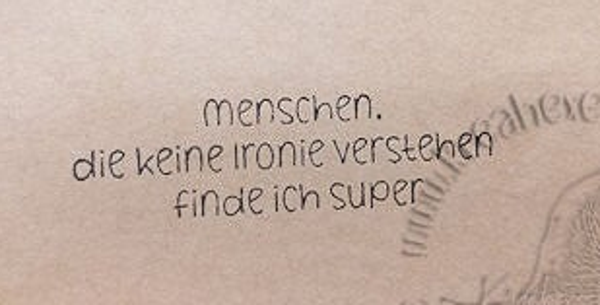 menschen.
die keine Ironie verstehen
finde ich super